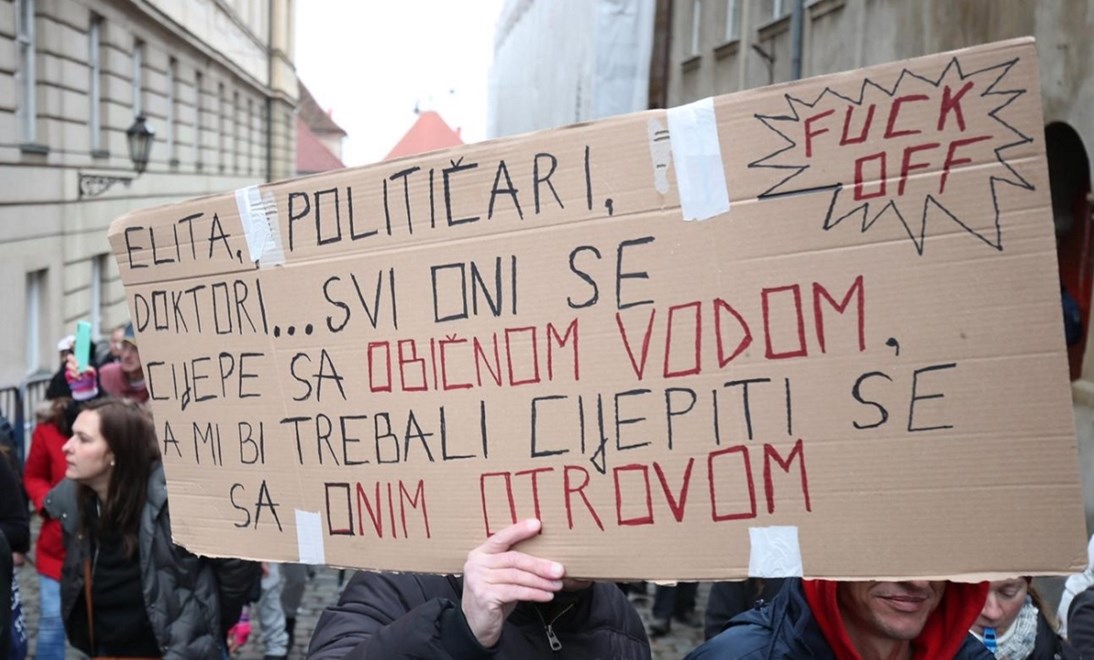 ELITA, POLITIČARI,
FUCK
OFF
DOKTORI...SVI ONI SE
CIJEPE SA OBIČNOM VODOM,
A MI BI TREBALI CIJEPITI SE
SA ONIM OTROVOM